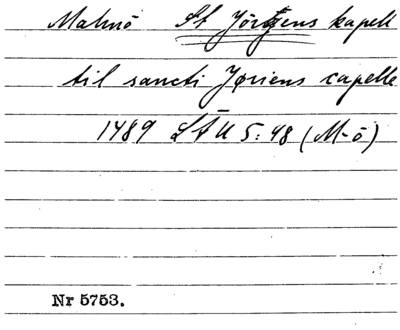 Malmö St Jörgens kapell
til sancti Jøriens capelle
1489 LÅU 5:98 (M-ö)
Nr 5753.